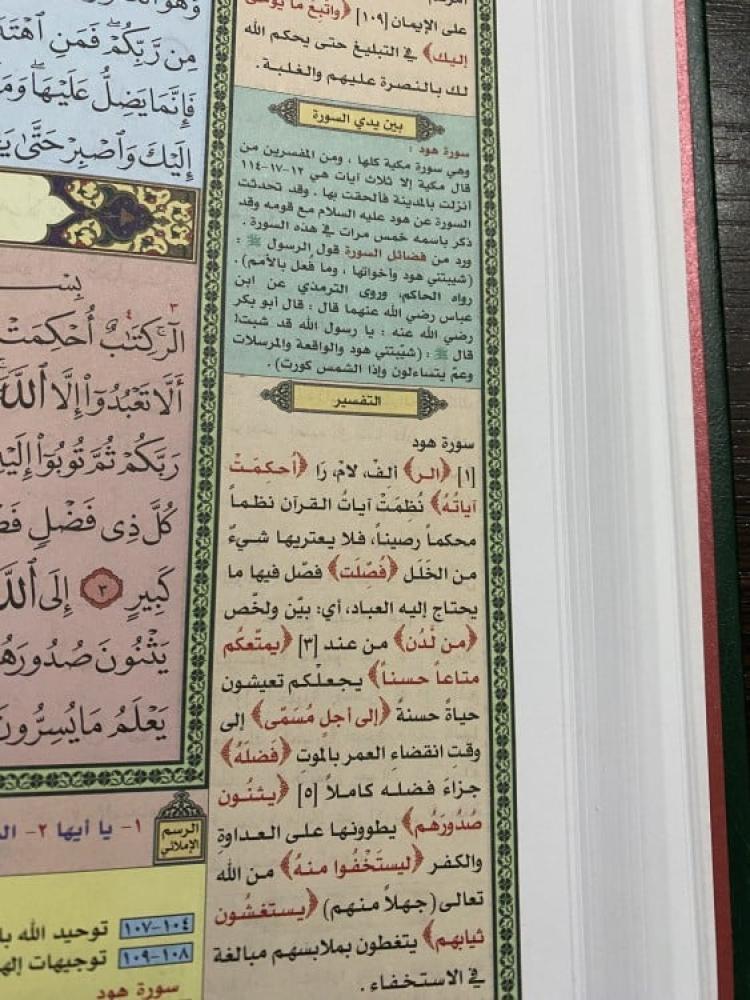 على الإيمان [١٠٩] ﴿واتبع ما يوحى
إليك﴾ في التبليغ حتى يحكم الله
لك بالنصرة عليهم والغلبة.
بين يدي السورة
سورة هود :
وهي سورة مكية كلها ، ومن المفسرين من
قال مكية إلا ثلاث آيات هي ١٢-١٧-١١٤
انزلت بالمدينة فألحقت بها . وقد تحدثت
السورة عن هود عليه السلام مع قومه وقد
ذكر باسمه خمس مرات في هذه السورة .
ورد من فضائل السورة قول الرسول ﷺ :
(شيبتني هود وأخواتها ، وما فعل بالأمم) .
رواه الحاكم، وروى الترمذي عن ابن
عباس رضي الله عنهما قال : قال أبو بكر
رضي الله عنه : يا رسول الله قد شبت!
قال ﷺ : (شيّبتني هود والواقعة والمرسلات
وعمّ يتساءلون وإذا الشمس كورت) .
التفسير
سورة هود
[١] ﴿الر﴾ ألف، لام، رَا ﴿أُحكِمَتْ
آياتُهُ﴾ نُظِمَتْ آياتُ القرآن نظماً
محكماً رصيناً، فلا يعتريها شيءٌ
من الخَلَل ﴿فُصّلَت﴾ فصّل فيها ما
يحتاج إليه العباد، أي: بيّن ولخّص
﴿من لّدُن﴾ من عند [٣] ﴿يمتّعكُم
متاعاً حسناً﴾ يجعلْكم تعيشون
حياةً حسنةً ﴿إلى أجلٍ مُسَمّى﴾ إلى
وقتِ انقضاءِ العمر بالموتِ ﴿فضلَهُ﴾
جزاءَ فضله كاملاً [٥] ﴿يثنُون
صُدُورَهُم﴾ يطوونها على العداوةِ
والكفر ﴿ليستَخْفُوا منهُ﴾ من الله
تعالى (جهلاً منهم) ﴿يستغشُون
ثيابهم﴾ يتغطون بملابسهم مبالغة
في الاستخفاء .
مِن رَّبِّكُمْ ۖ فَمَنِ ٱهْتَدَ
فَإِنَّمَا يَضِلُّ عَلَيْهَا ۖ وَمَ
إِلَيْكَ وَٱصْبِرْ حَتَّىٰ يَ
بِسْ
الٓر ۚ كِتَٰبٌ أُحْكِمَتْ
أَلَّا تَعْبُدُوٓا۟ إِلَّا ٱللَّهَ
رَبَّكُمْ ثُمَّ تُوبُوٓا۟ إِلَيْ
كُلَّ ذِى فَضْلٍ فَ
كَبِيرٍ ٣ إِلَى ٱللَّ
يَثْنُونَ صُدُورَهُ
يَعْلَمُ مَا يُسِرُّونَ
الرسم
الإملائي
١- يا أيها ٢-
١٠٤-١٠٧ توحيد الله
١٠٨-١٠٩ توجيهات
سورة هود